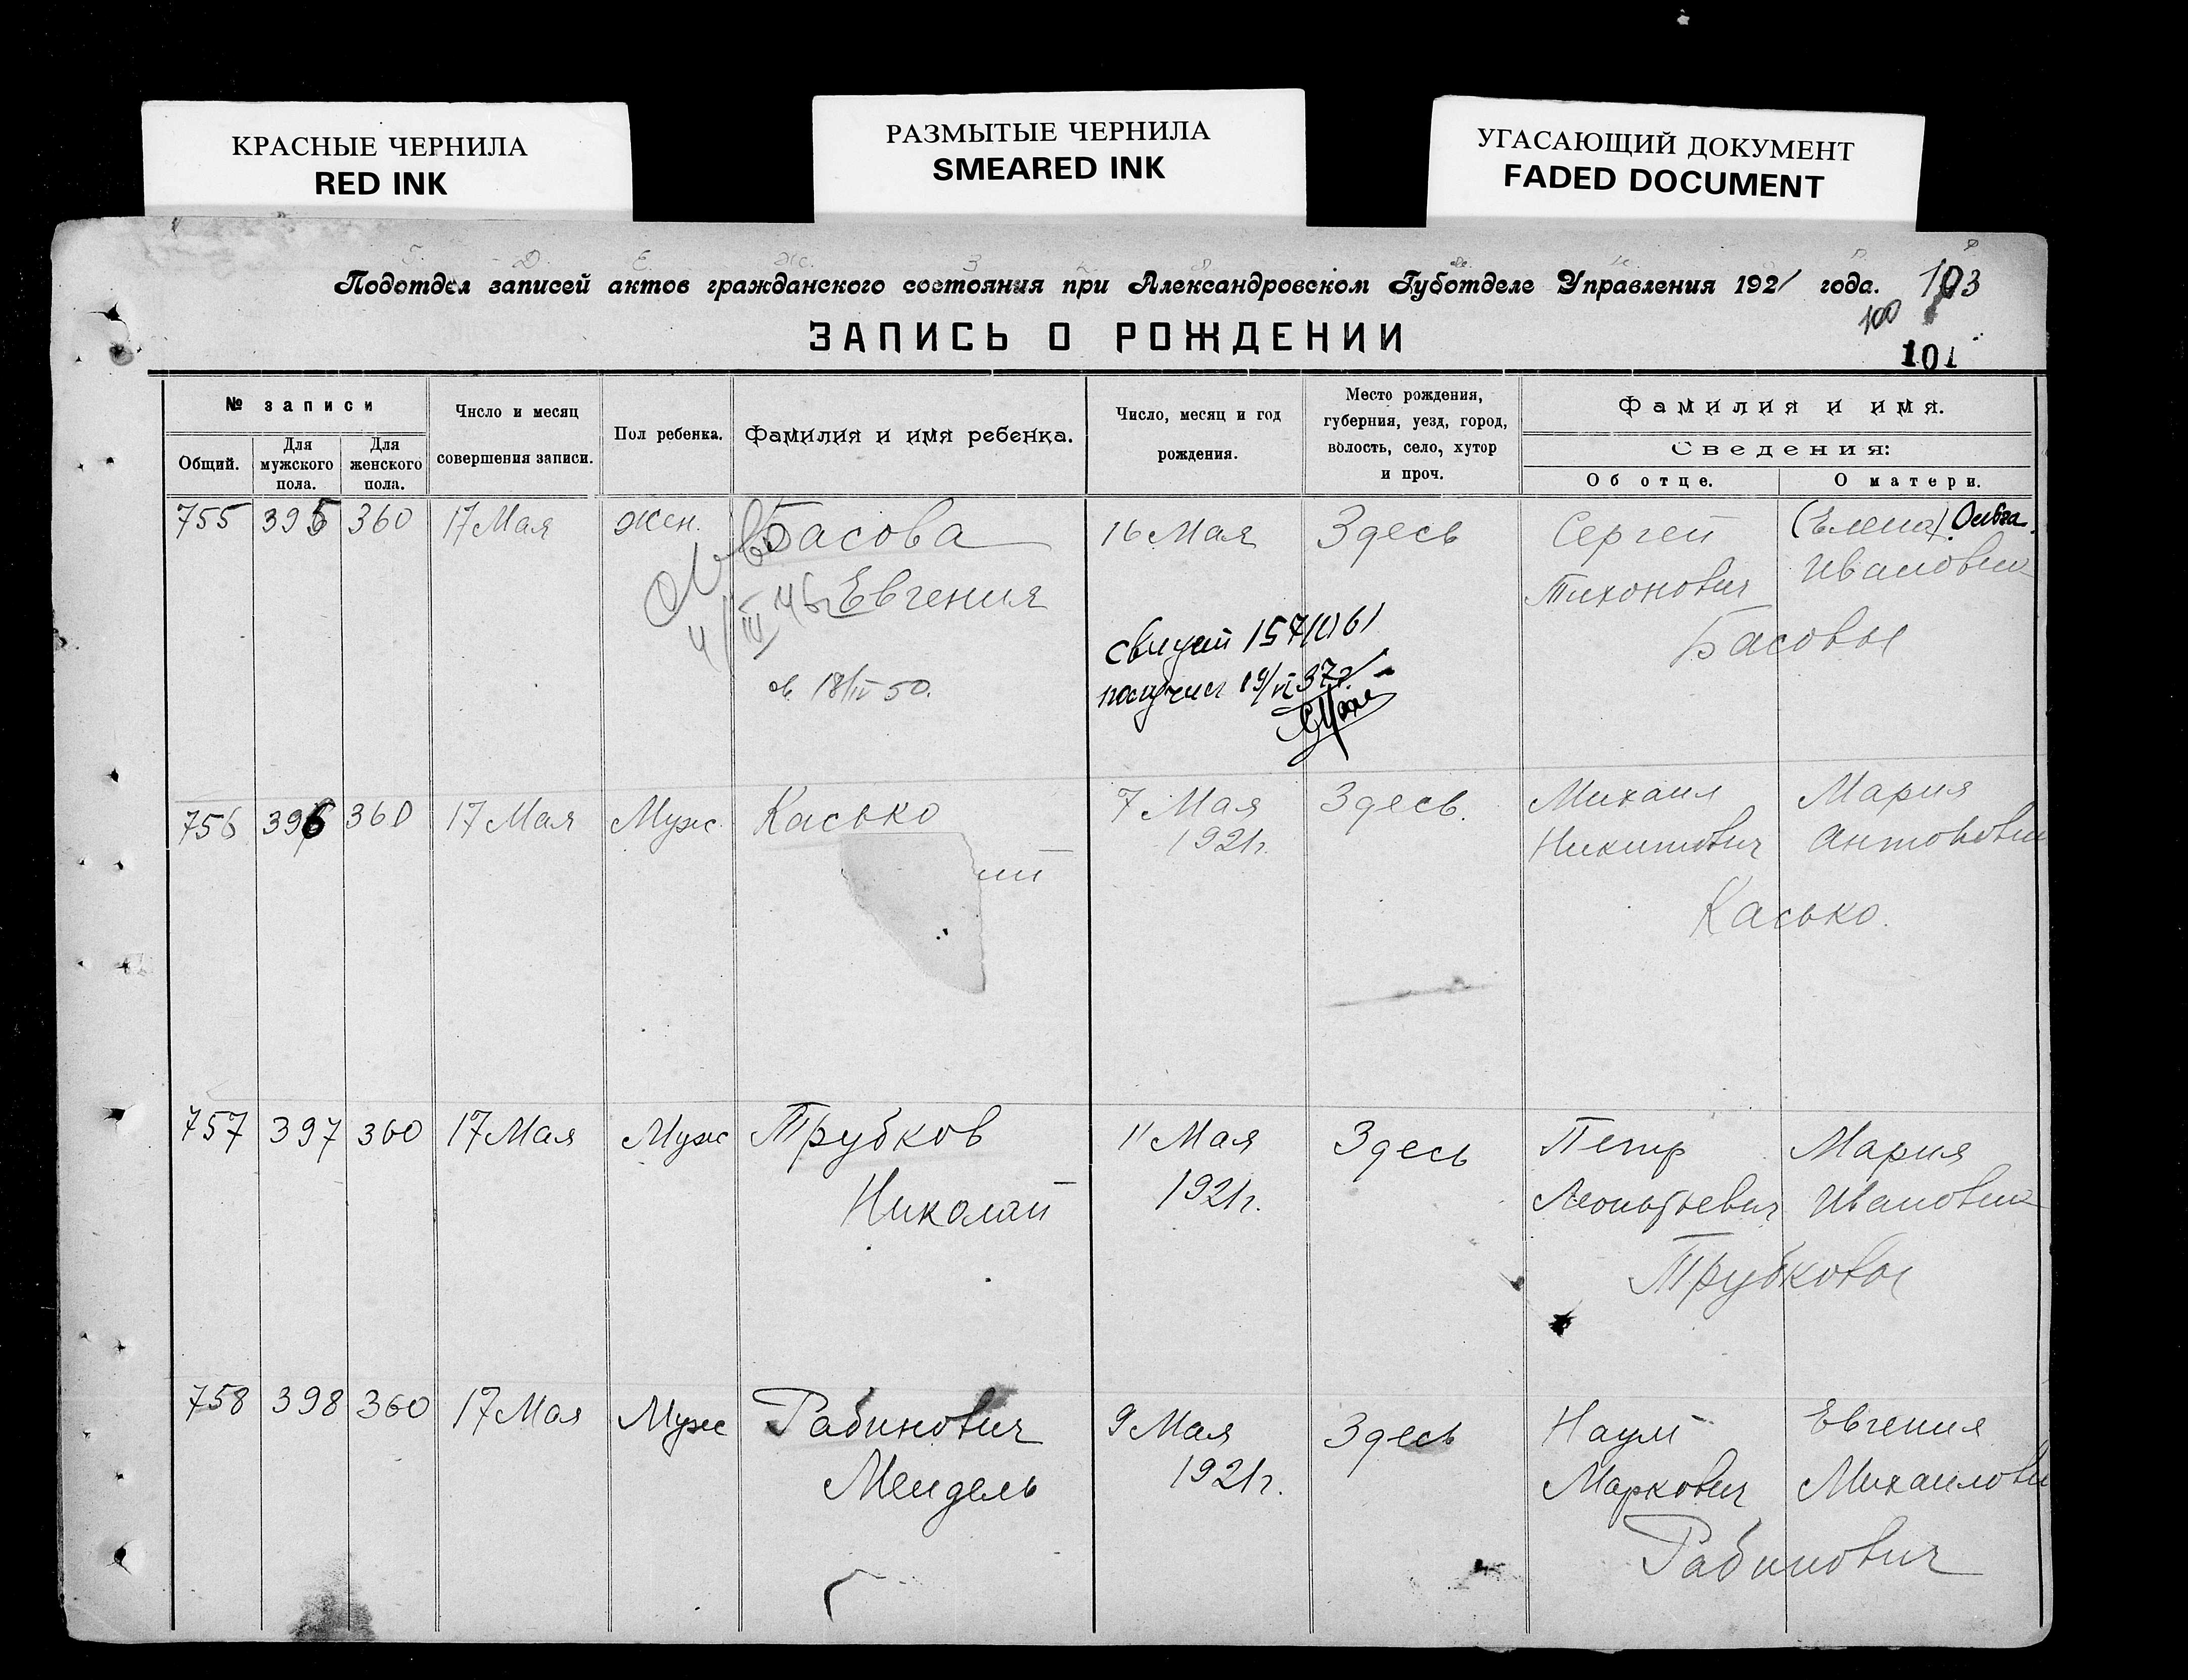 КРАСНЫЕ ЧЕРНИЛА
RED INK
РАЗМЫТЫЕ ЧЕРНИЛА
SMEARED INK
УГАСАЮЩИЙ ДОКУМЕНТ
FADED DOCUMENT
Подотдел записей актов гражданского состояния при Александровском Губотделе Управления 1921 года. 103
100
ЗАПИСЬ О РОЖДЕНИИ
101
№ записи
Общий.
Для мужского пола.
Для женского пола.
Число и месяц совершения записи.
Пол ребенка.
Фамилия и имя ребенка.
Число, месяц и год рождения.
Место рождения, губерния, уезд, город, волость, село, хутор и проч.
Фамилия и имя.
Сведения:
Об отце.
О матери.
755 395 360 17 Мая жен. Басова 16 Мая Здесь Сергей (Елена) Ольга
Евгения Тихонович Ивановна
Басовы
18/IV 50.
получил 19/VI 37г.
756 396 360 17 Мая Муж Касько 7 Мая Здесь. Михаил Мария
ий 1921г. Никитович Антоновн
Касько.
757 397 360 17 Мая Муж Трубков 11 Мая Здесь Петр Мария
Николай 1921г. Леонтьевич Ивановна
Трубковы
758 398 360 17 Мая Муж Рабинович 9 Мая Здесь Наум Евгения
Мендель 1921г. Маркович Михаиловн
Рабинович